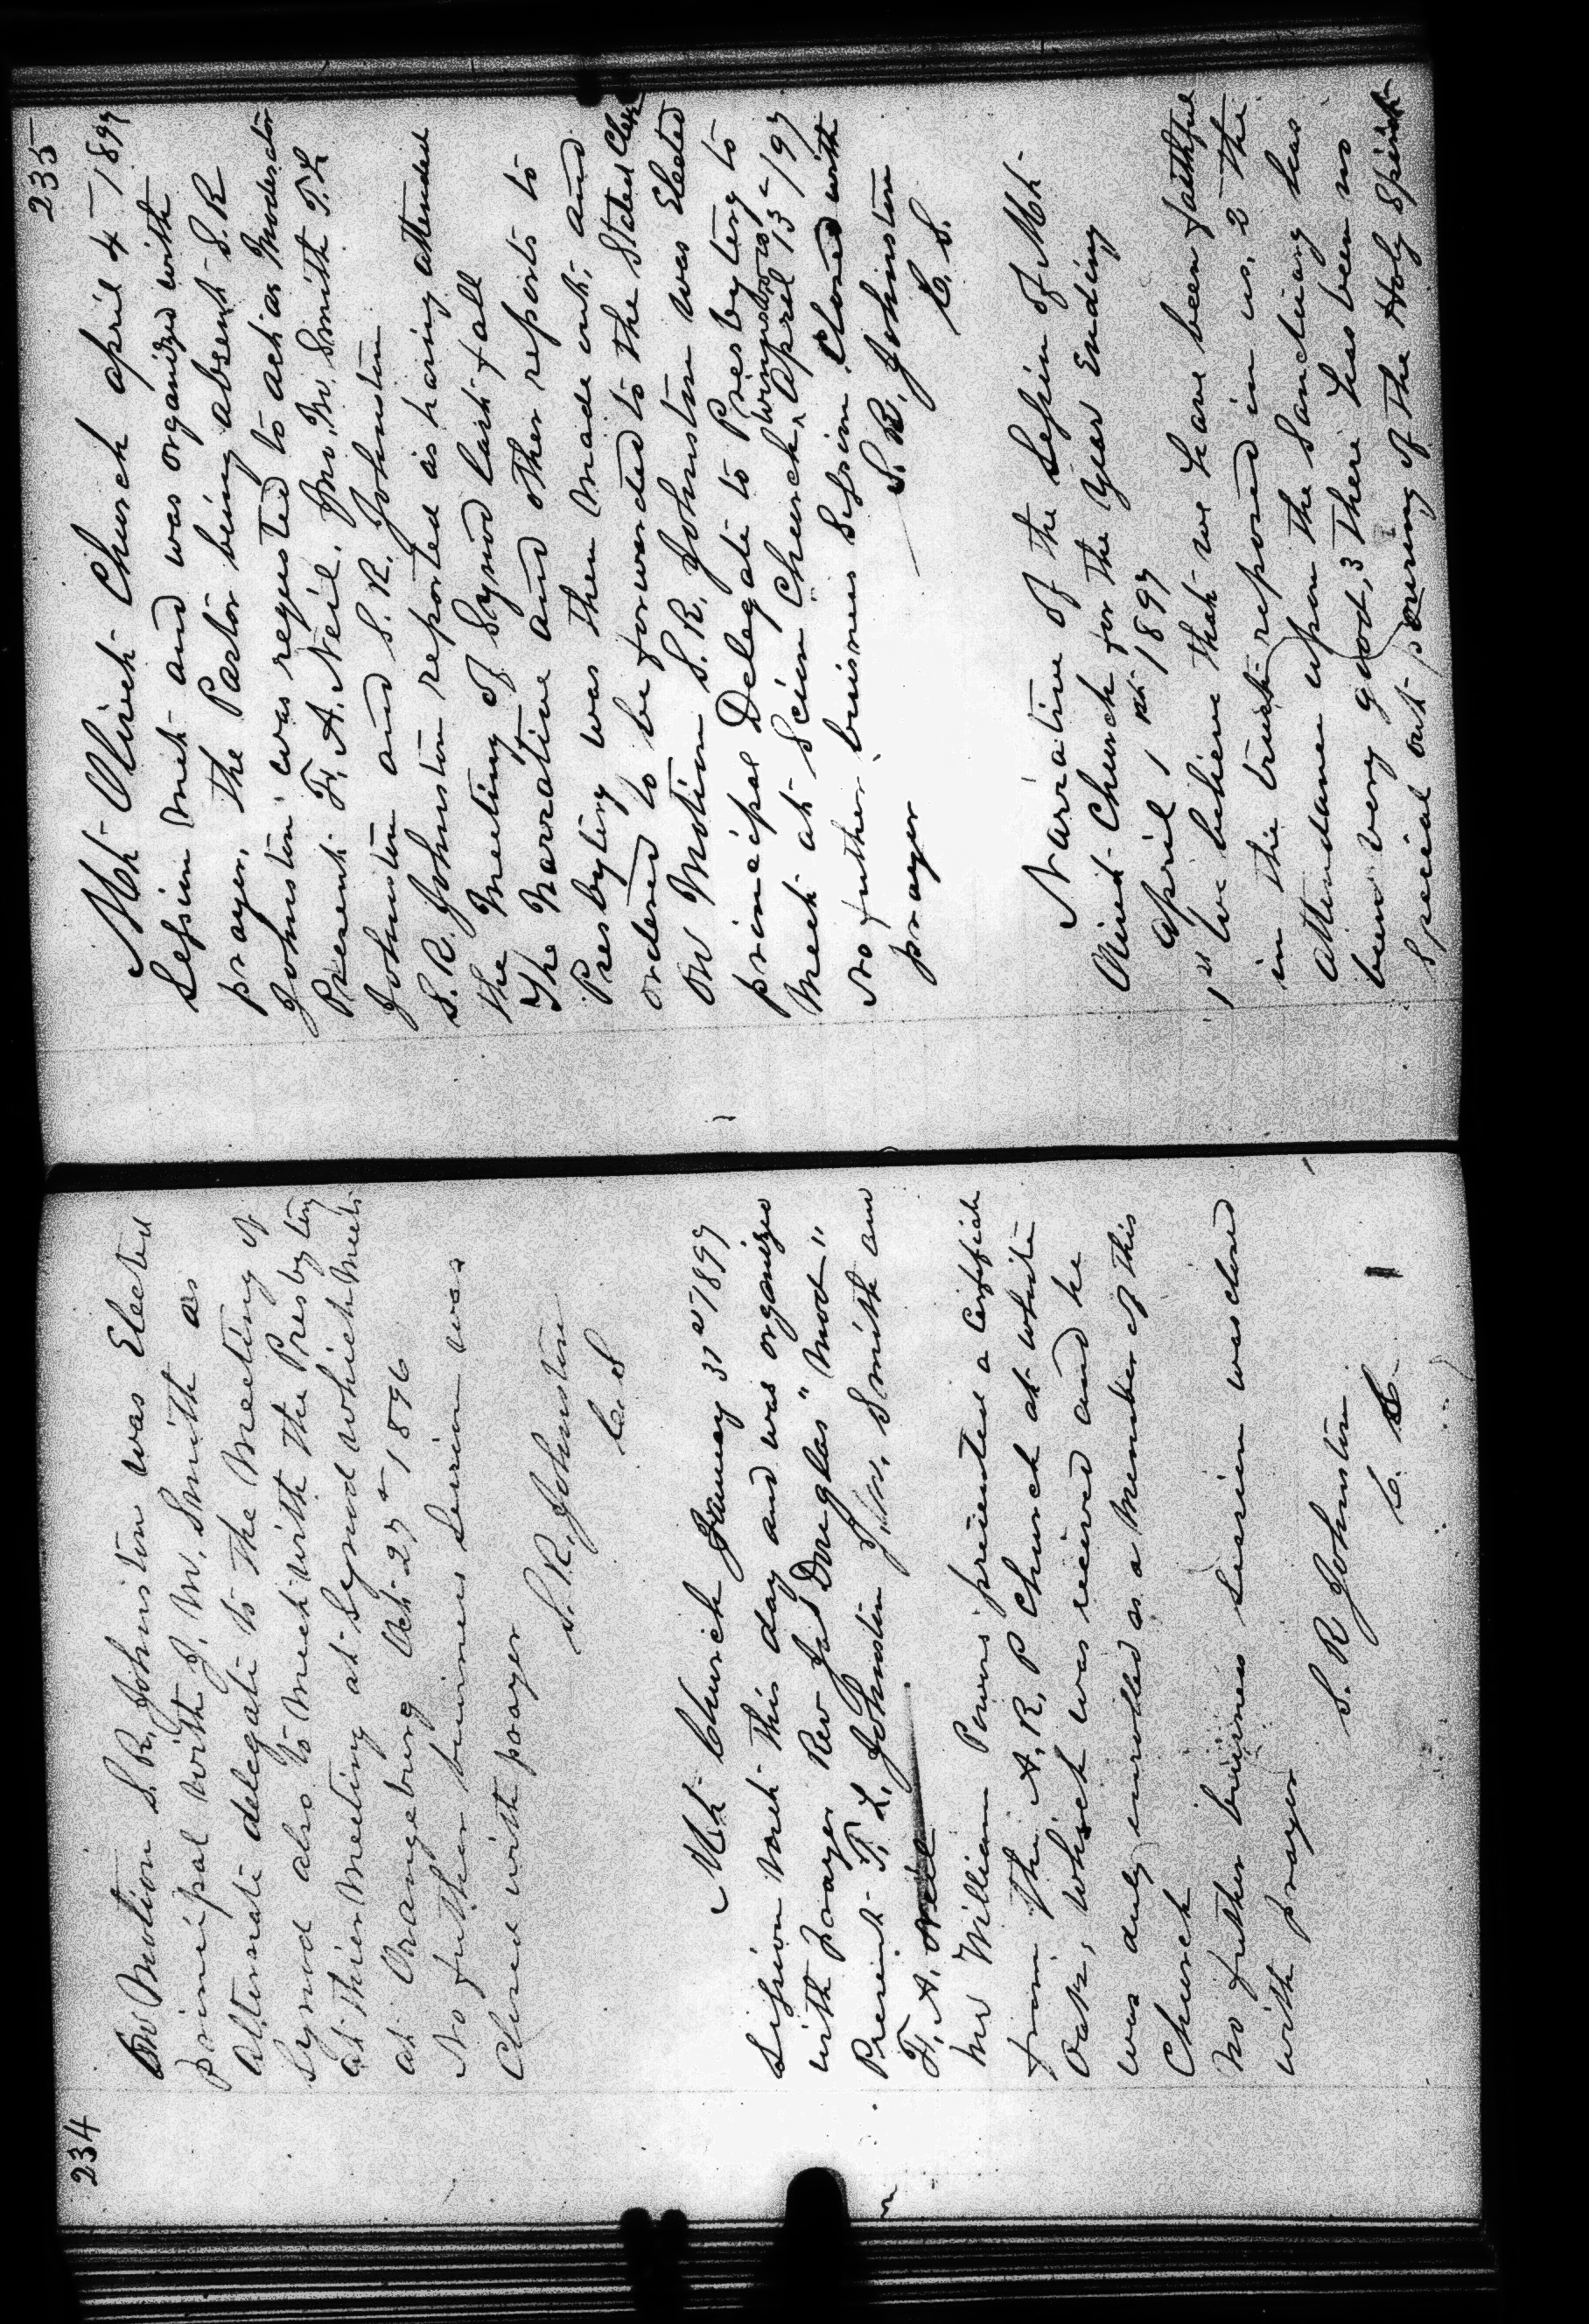 234
On Motion S. R. Johnston was Elected
principal with J. W. Smith as
alternate delegate to the Meeting of
Synod also to Meet with the Presbytery
at thier Meeting at Synod which Meets
at Orangeburg Oct 27th 1896
No futher business Session was
Closed with prayer
S. R. Johnston
C. S
Mt Church January 31st 1897
Session met this day and was organized
with prayer Rev Jas Douglas "Mod"
Present T. L. Johnston J. W. Smith and
F. A. Neil
Mr William Powers presented a Certificate
from The A. R. P Church at White
Oak, which was received and he
was duly enrolled as a Member of this
Church
No futher business Session was closed
with prayer
S. R Johnston
C. S.
235
Mt Olivet Church april 4th 1897
Session met and was organized with
prayer, the Pastor being absent S. R
Johnston was requested to act as Moderator
Present F. A. Neil, Jno. W. Smith T. L
Johnston and S. R. Johnston
S. R. Johnston reported as having attended
the Meeting of Synod last fall
The Narrative and other reports to
Presbytery was then Made out, and
ordered to be forwarded to the Stated Clerk
On Motion S. R. Johnston was Elected
principal Delegate to Presbytery to
Meet at Scion Church, Winnsboro April 13th/97
No futher business Session Closed with
prayer
S. R. Johnston
C. S.
Narrative of the Session of Mt
Olivet Church for the Year Ending
April 1st 1897
1st We believe that we have been faithful
in the trust reposed in us, 2 The
attendance upon the Sanctuary has
been very good, 3 There has been no
Special out pouring of the Holy Spirit